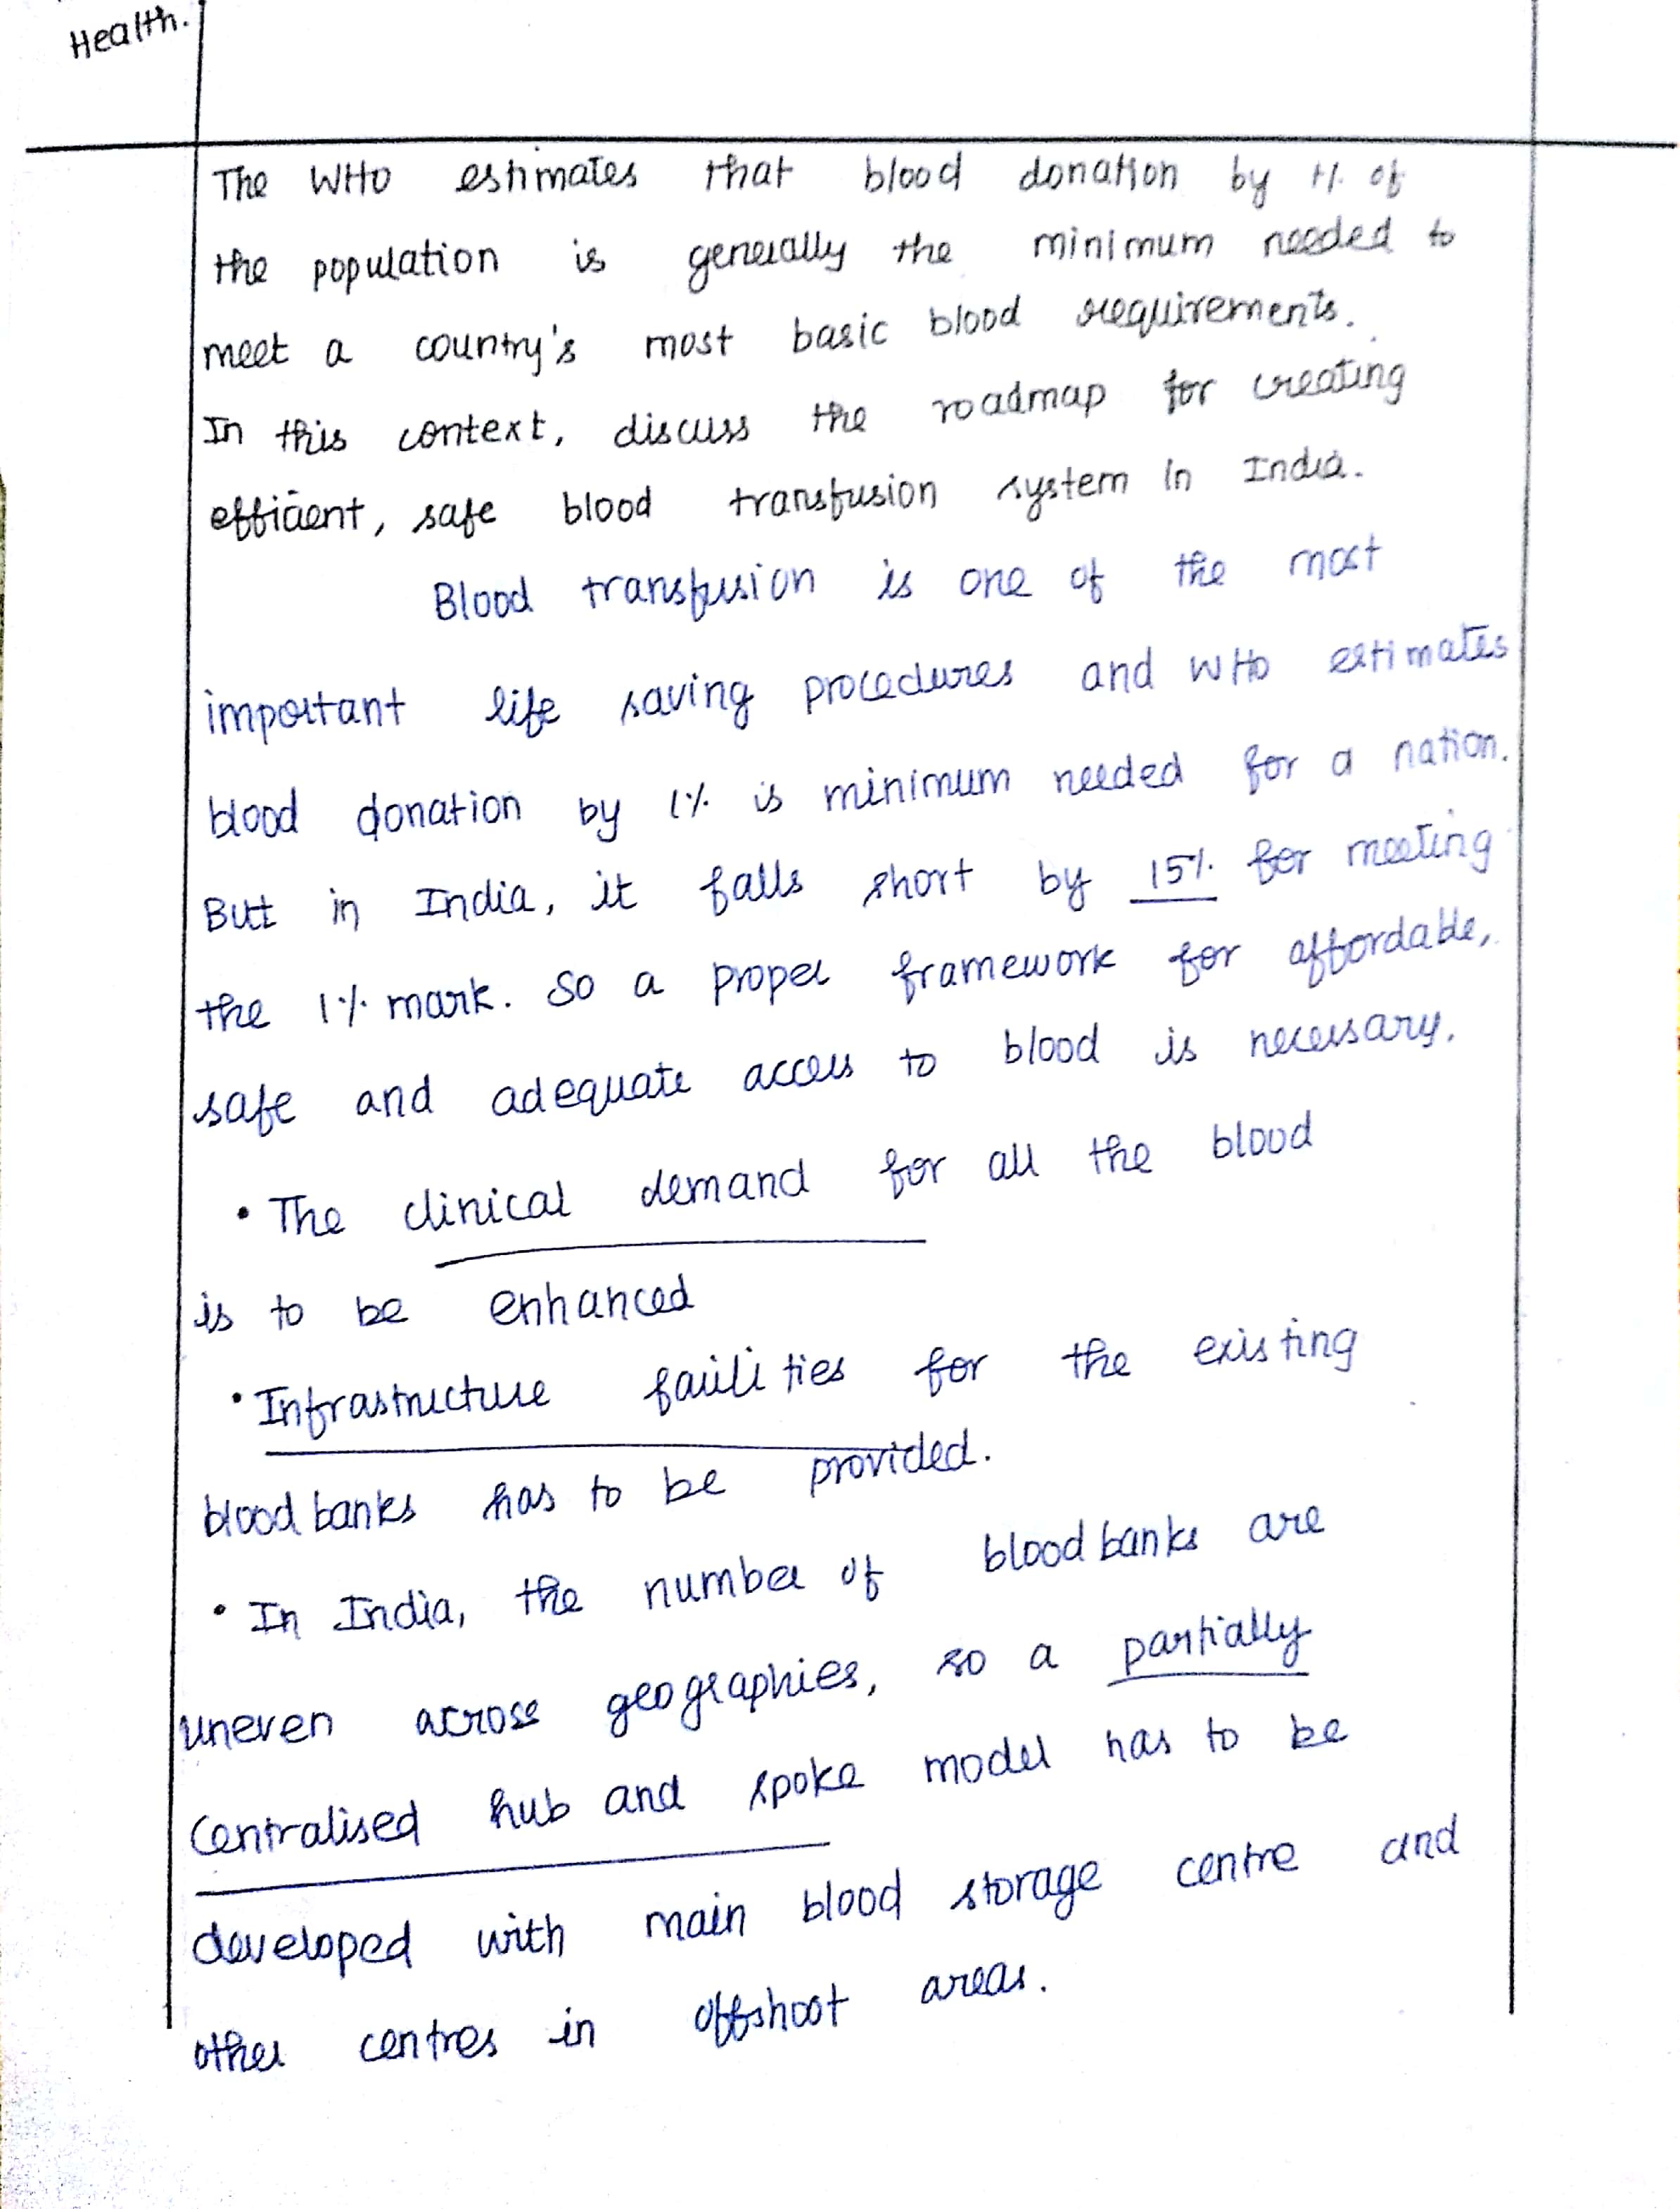 Health.
The WHO estimates that blood donation by 1% of
the population is generally the minimum needed to
meet a country's most basic blood requirements.
In this context, discuss the roadmap for creating
efficient, safe blood transfusion system in India.
Blood transfusion is one of the most
important life saving procedures and WHO estimates
blood donation by 1% is minimum needed for a nation.
But in India, it falls short by 15% for meeting
the 1% mark. So a proper framework for affordable,
safe and adequate access to blood is necessary.
• The clinical demand for all the blood
is to be enhanced
• Infrastructure facilities for the existing
blood banks has to be provided.
• In India, the number of blood banks are
uneven across geographies, so a partially
centralised hub and spoke model has to be
developed with main blood storage centre and
other centres in offshoot areas.